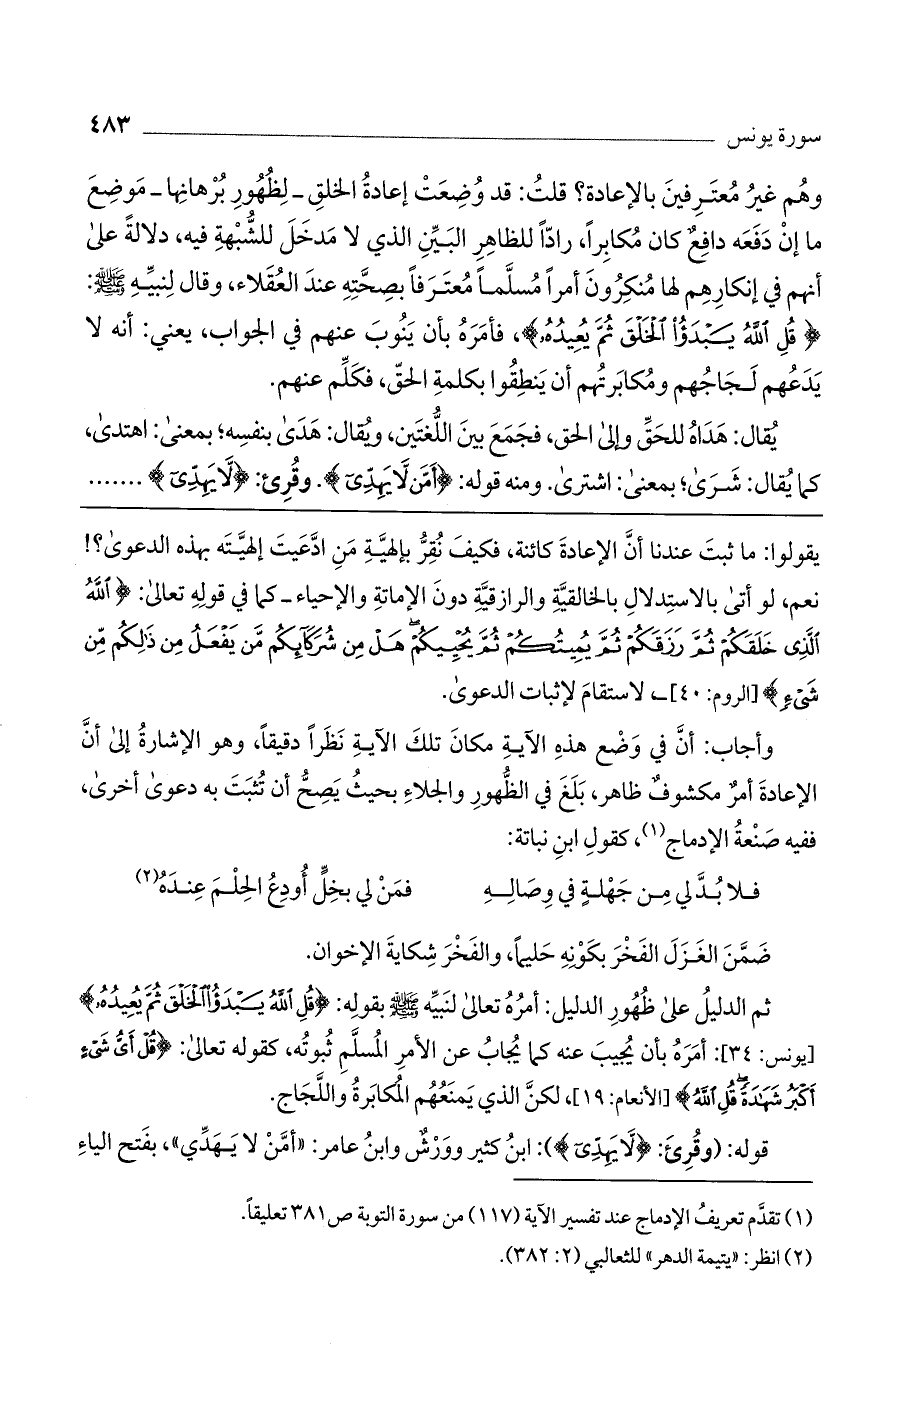 سورة يونس ٤٨٣
وهُم غيرُ مُعتَرِفينَ بالإعادة؟ قلتُ: قد وُضِعَتْ إعادةُ الخلقِ ـ لِظُهُورِ بُرْهانِها ـ مَوضِعَ
ما إنْ دَفَعَه دافِعٌ كان مُكابِراً، رادّاً للظاهِرِ البَيِّنِ الذي لا مَدخَلَ للشُّبْهةِ فيه، دلالةً علىٰ
أنهم في إنكارِهِم لها مُنكِرُونَ أمراً مُسلَّماً مُعتَرَفاً بصِحَّتِهِ عندَ العُقَلاء، وقال لِنبيِّهِ ﷺ:
﴿ قُلِ ٱللَّهُ يَبْدَؤُا۟ ٱلْخَلْقَ ثُمَّ يُعِيدُهُۥ﴾، فأمَرَهُ بأن يَنُوبَ عنهم في الجواب، يعني: أنه لا
يَدَعُهم لَجاجُهم ومُكابَرتُهم أن يَنطِقُوا بكلمةِ الحقّ، فكَلِّم عنهم.
يُقال: هَدَاهُ للحَقِّ وإلىٰ الحق، فجَمَعَ بينَ اللُّغتَين، ويُقال: هَدَىٰ بنفسِه؛ بمعنىٰ: اهتدىٰ،
كما يُقال: شَرَىٰ؛ بمعنىٰ: اشترىٰ. ومنه قوله: ﴿أَمَّن لَّا يَهِدِّىٓ﴾. وقُرِئ: ﴿لَّا يَهِدِّىٓ﴾ .......
يقولوا: ما ثبتَ عندنا أنَّ الإعادةَ كائنة، فكيفَ نُقِرُّ بإلهيَّةِ مَنِ ادَّعَيتَ إلهيَّتَه بهذه الدعوىٰ؟!
نعم، لو أتىٰ بالاستدلالِ بالخالقيَّةِ والرازقيَّةِ دونَ الإماتةِ والإحياء ـ كما في قولِهِ تعالىٰ: ﴿ ٱللَّهُ
ٱلَّذِى خَلَقَكُمْ ثُمَّ رَزَقَكُمْ ثُمَّ يُمِيتُكُمْ ثُمَّ يُحْيِيكُمْ ۖ هَلْ مِن شُرَكَآئِكُم مَّن يَفْعَلُ مِن ذَٰلِكُم مِّن
شَىْءٍ﴾ [الروم: ٤٠] ـ، لاستقامَ لإثبات الدعوىٰ.
وأجاب: أنَّ في وَضْعِ هذهِ الآيةِ مكانَ تلكَ الآيةِ نَظَراً دقيقاً، وهو الإشارةُ إلىٰ أنَّ
الإعادةَ أمرٌ مكشوفٌ ظاهر، بَلَغَ في الظُّهورِ والجلاءِ بحيثُ يَصِحُّ أن تُثبَتَ به دعوىٰ أخرىٰ،
ففيه صَنْعةُ الإدماج(١)، كقولِ ابنِ نباتة:
فلا بُدَّ لي مِن جَهْلةٍ في وِصَالِهِ فمَنْ لي بخِلٍّ أُودِعُ الحِلْمَ عِندَهُ(٢)
ضَمَّنَ الغَزَلَ الفَخْرَ بكَوْنِهِ حَليماً، والفَخْرَ شِكايةَ الإخوان.
ثم الدليلُ علىٰ ظُهُورِ الدليل: أمرُهُ تعالىٰ لنَبيِّه ﷺ بقولِه: ﴿قُلِ ٱللَّهُ يَبْدَؤُا۟ ٱلْخَلْقَ ثُمَّ يُعِيدُهُۥ﴾
[يونس: ٣٤]: أمَرَهُ بأن يُجيبَ عنه كما يُجابُ عن الأمرِ المُسلَّمِ ثُبوتُه، كقوله تعالىٰ: ﴿قُلْ أَىُّ شَىْءٍ
أَكْبَرُ شَهَٰدَةً ۖ قُلِ ٱللَّهُ﴾ [الأنعام: ١٩]، لكنَّ الذي يَمنَعُهُم المُكابَرةُ واللَّجاج.
قوله: (وقُرِئ: ﴿لَّا يَهِدِّىٓ﴾): ابنُ كثير ووَرْشٌ وابنُ عامر: «أمَّنْ لا يَهَدِّي»، بفَتح الياءِ
(١) تقدَّم تعريفُ الإدماج عند تفسير الآية (١١٧) من سورة التوبة ص٣٨١ تعليقاً.
(٢) انظر: «يتيمة الدهر» للثعالبي (٢: ٣٨٢).